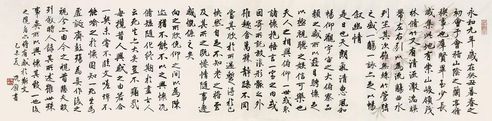 永和九年歲在癸丑暮春之
初會于會稽山陰之蘭亭脩
禊事也群賢畢至少長咸
集此地有崇山峻領茂
林脩竹又有清流激湍映
帶左右引以為流觴曲水
列坐其次雖無絲竹管絃
之盛一觴一詠亦足以暢
敘幽情
是日也天朗氣清惠風和
暢仰觀宇宙之大俯察品
類之盛所以遊目騁懷足
以極視聽之娛信可樂也
夫人之相與俯仰一世或取
諸懷抱悟言一室之內或
因寄所託放浪形骸之外
雖趣舍萬殊靜躁不同
當其欣於所遇暫得於己
快然自足不知老之將至
及其所之既惓情隨事遷
感慨係之矣
向之所欣俛仰之間以為陳
迹猶不能不以之興懷況
脩短隨化終期於盡古人
云死生亦大矣豈不痛哉
每攬昔人興感之由若合
一契未嘗不臨文嗟悼不
能喻之於懷固知一死生為
虛誕齊彭殤為妄作後之
視今亦由今之視昔悲夫故
列敘時人錄其所述雖世殊
事異所以興懷其致一也後
之攬者亦將有感於斯文